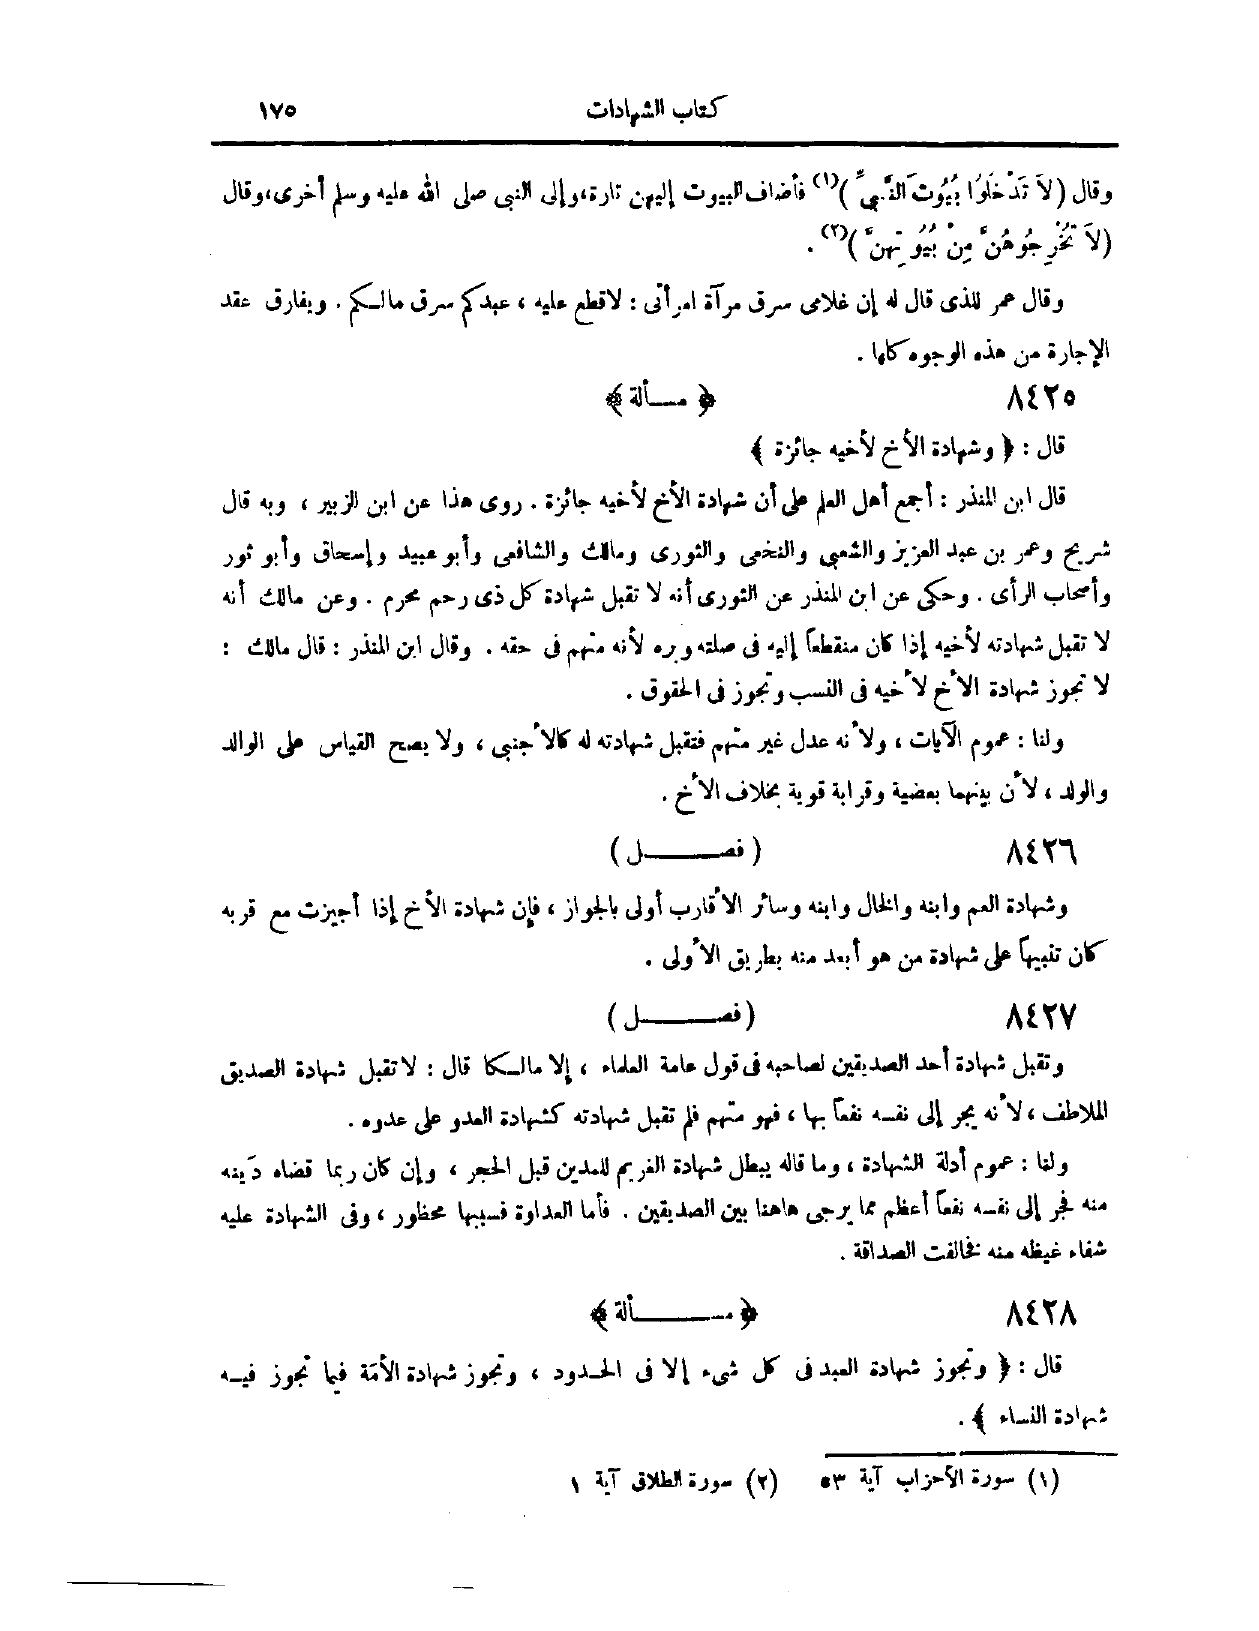 كتاب الشهادات ١٧٥
وقال (لاَ تَدْخَلُوا بُيُوتَ النَّبِيِّ)(١) فأضاف البيوت إليهن تارة، وإلى النبى صلى الله عليه وسلم أخرى، وقال
(لاَ تُخْرِجُوهُنَّ مِنْ بُيُوتِهِنَّ)(٢) .
وقال عمر للذى قال له إن غلامى سرق مرآة امرأتى : لاقطع عليه ، عبدكم سرق مالكم . ويفارق عقد
الإجارة من هذه الوجوه كلها .
٨٤٢٥ ﴿ مسألة ﴾
قال : ﴿ وشهادة الأخ لأخيه جائزة ﴾
قال ابن المنذر : أجمع أهل العلم على أن شهادة الأخ لأخيه جائزة . روى هذا عن ابن الزبير ، وبه قال
شريح وعمر بن عبد العزيز والشعبي والنخعى والثورى ومالك والشافعى وأبو عبيد وإسحاق وأبو ثور
وأصحاب الرأى . وحكى عن ابن المنذر عن الثورى أنه لا تقبل شهادة كل ذى رحم محرم . وعن مالك أنه
لا تقبل شهادته لأخيه إذا كان منقطعاً إليه فى صلته وبره لأنه متهم فى حقه . وقال ابن المنذر : قال مالك :
لا تجوز شهادة الأخ لأخيه فى النسب وتجوز فى الحقوق .
ولنا : عموم الآيات ، ولأنه عدل غير متهم فتقبل شهادته له كالأجنبى ، ولا يصح القياس على الوالد
والولد ، لأن بينهما بعضية وقرابة قوية بخلاف الأخ .
٨٤٢٦ ( فصل )
وشهادة العم وابنه والخال وابنه وسائر الأقارب أولى بالجواز ، فإن شهادة الأخ إذا أجيزت مع قربه
كان تنبيهاً على شهادة من هو أبعد منه بطريق الأولى .
٨٤٢٧ ( فصل )
وتقبل شهادة أحد الصديقين لصاحبه فى قول عامة العلماء ، إلا مالكا قال : لا تقبل شهادة الصديق
الملاطف ، لأنه يجر إلى نفسه نفعاً بها ، فهو متهم فلم تقبل شهادته كشهادة العدو على عدوه .
ولنا : عموم أدلة الشهادة ، وما قاله يبطل شهادة الغريم للمدين قبل الحجر ، وإن كان ربما قضاه دَينه
منه فجر إلى نفسه نفعاً أعظم مما يرجى هاهنا بين الصديقين . فأما العداوة فسببها محظور ، وفى الشهادة عليه
شفاء غيظه منه فخالفت الصداقة .
٨٤٢٨ ﴿ مسألة ﴾
قال : ﴿ وتجوز شهادة العبد فى كل شىء إلا فى الحدود ، وتجوز شهادة الأمَة فيما تجوز فيه
شهادة النساء ﴾ .
(١) سورة الأحزاب آية ٥٣ (٢) سورة الطلاق آية ١